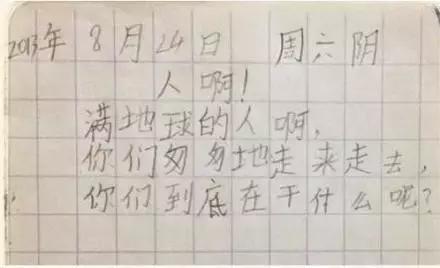 2013年 8月24日 周六 阴
人啊!
满地球的人啊,
你们匆匆地走来走去,
你们到底在干什么呢?